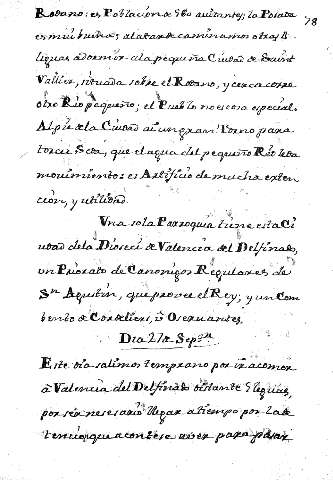 Rodano: es Poblacion de 560 avitantes; la Posada
es mui buena; a la tarde caminamos otras 8
leguas a dormir a la pequeña Ciudad de Saint
Vallier, situada sobre el Rodano, y cerca corre
otro Rio pequeño; el Pueblo no es cosa especial.
Al pie de la Ciudad ai un gran Torno para
torcer Seda, que el agua del pequeño Rio le da
movimiento: es Artificio de mucha exten
cion, y utilidad.
Una sola Parroquia tiene esta Ci
udad de la Dioseci de Valencia del Delfinado,
un Priorato de Canonigos Regulares de
Sn Agustin, que provee el Rey; y un Com
bento de Cordeliers, ò Oservantes.
Dia 27 de Sepre.
Este dia salimos temprano por ir a comer
a Valencia del Delfinado distante 5 leguas,
por ser nesesario llegar a tiempo por la de
tencion que acontese aver para pasar
78